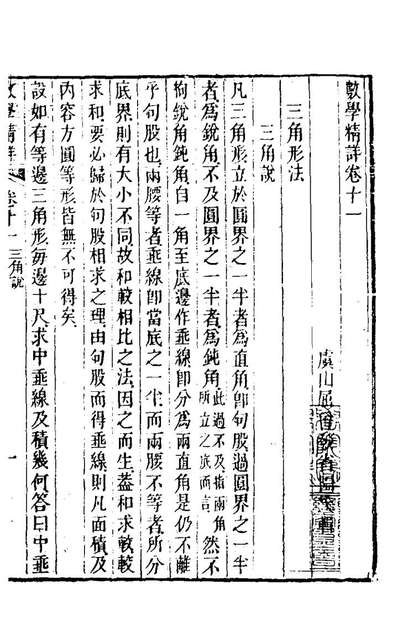 數學精詳卷十一
虞山屈曾發省園輯
三角形法
三角說
凡三角形立於圜界之一半者爲直角卽句股過圜界之一半
者爲銳角不及圜界之一半者爲鈍角此過不及指兩角所立之底而言然不
拘銳角鈍角自一角至底邊作垂線卽分爲兩直角是仍不離
乎句股也兩腰等者垂線卽當底之一半而兩腰不等者所分
底界則有大小不同故和較相比之法因之而生蓋和求較較
求和要必歸於句股相求之理由句股而得垂線則凡面積及
內容方圓等形皆無不可得矣
設如有等邊三角形每邊十尺求中垂線及積幾何答曰中垂
數學精詳 卷十一 三角說 一